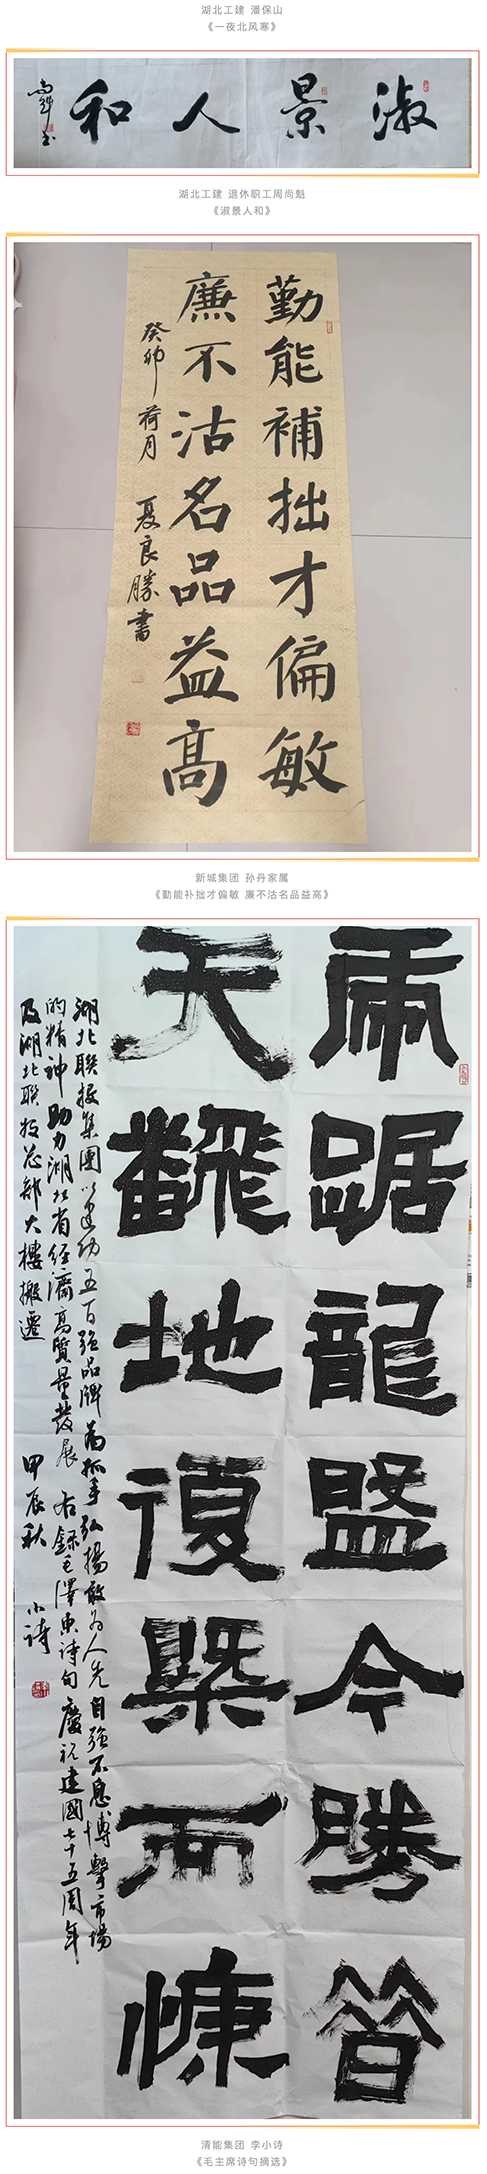 湖北工建 潘保山
《一夜北风寒》
淑景人和
湖北工建 退休职工周尚魁
《淑景人和》
勤能補拙才偏敏
廉不沽名品益高
癸卯荷月 夏良勝書
新城集团 孙丹家属
《勤能补拙才偏敏 廉不沽名品益高》
虎踞龍盤今勝昔
天飜地復慨而慷
湖北聯投集團以建功五百强品牌為抓手弘揚敢为人先自强不息搏擊市場
的精神助力湖北省经濟高質量發展 右録毛澤東诗句慶祝建國七十五周年
及湖北聯投总部大樓搬遷 甲辰秋 小诗
清能集团 李小诗
《毛主席诗句摘选》